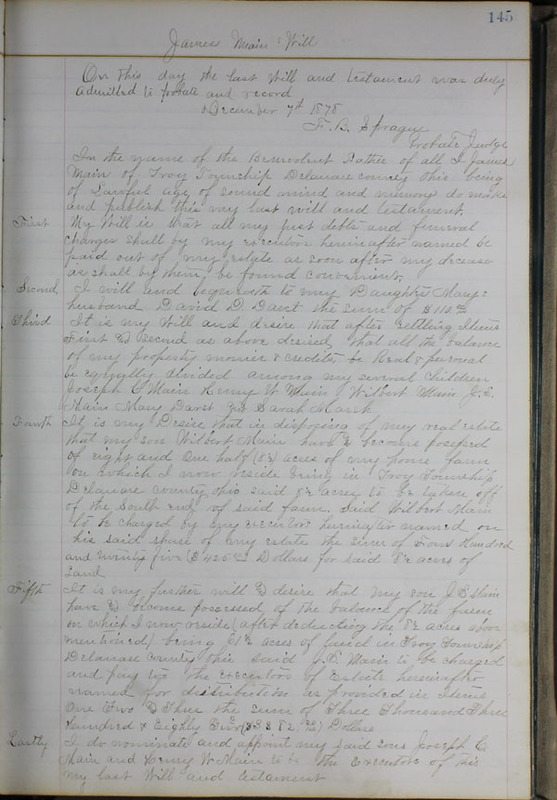 145
James Main's Will
On this day the last Will and testament was duly
admitted to probate and record
December 7th 1878
F. B. Sprague
Probate Judge
In the name of the Benevolent Father of all I James
Main of Troy Township Delaware county Ohio being
of Lawful age of sound mind and memory do make
and publish this my last will and testament
First My Will is that all my just debts and funeral
charges shall by my executors hereinafter named be
paid out of my estate as soon after my decease
as shall by them be found convenient.
Second I will and bequeath to my Daughter Mary's
husband David D. Darst the sum of
Third It is my Will and desire that after settling Items
First & Second as above desired, that all the balance
of my property monies & credits be Real & personal
be equally divided among my several children
Joseph Main Henry W Main, Wilbert Main J. E.
Main Mary Darst and Sarah
Fourth It is my Desire that in disposing of my real estate
that my son Wilbert Main have & become posessed
of eight and one half (8½) acres of my home farm
on which I now reside being in Troy Township
Delaware County Ohio said 8½ acres to be taken off
of the South end of said farm. Said Wilbert Main
to be charged by my executors hereinafter named on
his said share of my estate the sum of Four Hundred
and twenty five ($425) Dollars for said 8½ acres of
Land
Fifth It is my further will & desire that my son J. E. Main
have & become posessed of the balance of the farm
on which I now reside (after deducting the 8½ acres above
mentioned) being acres of land in Troy Township
Delaware County Ohio Said J. E. Main to be charged
and pay to the executors of Estate hereinafter
named for distribution as provided in Items
One Two & Three the sum of Three Thousand Three
Hundred & Eighty Two ($3382) Dollars
Lastly I do nominate and appoint my said sons Joseph
Main and Henry W Main to be the Executors of this
my last Will and testament